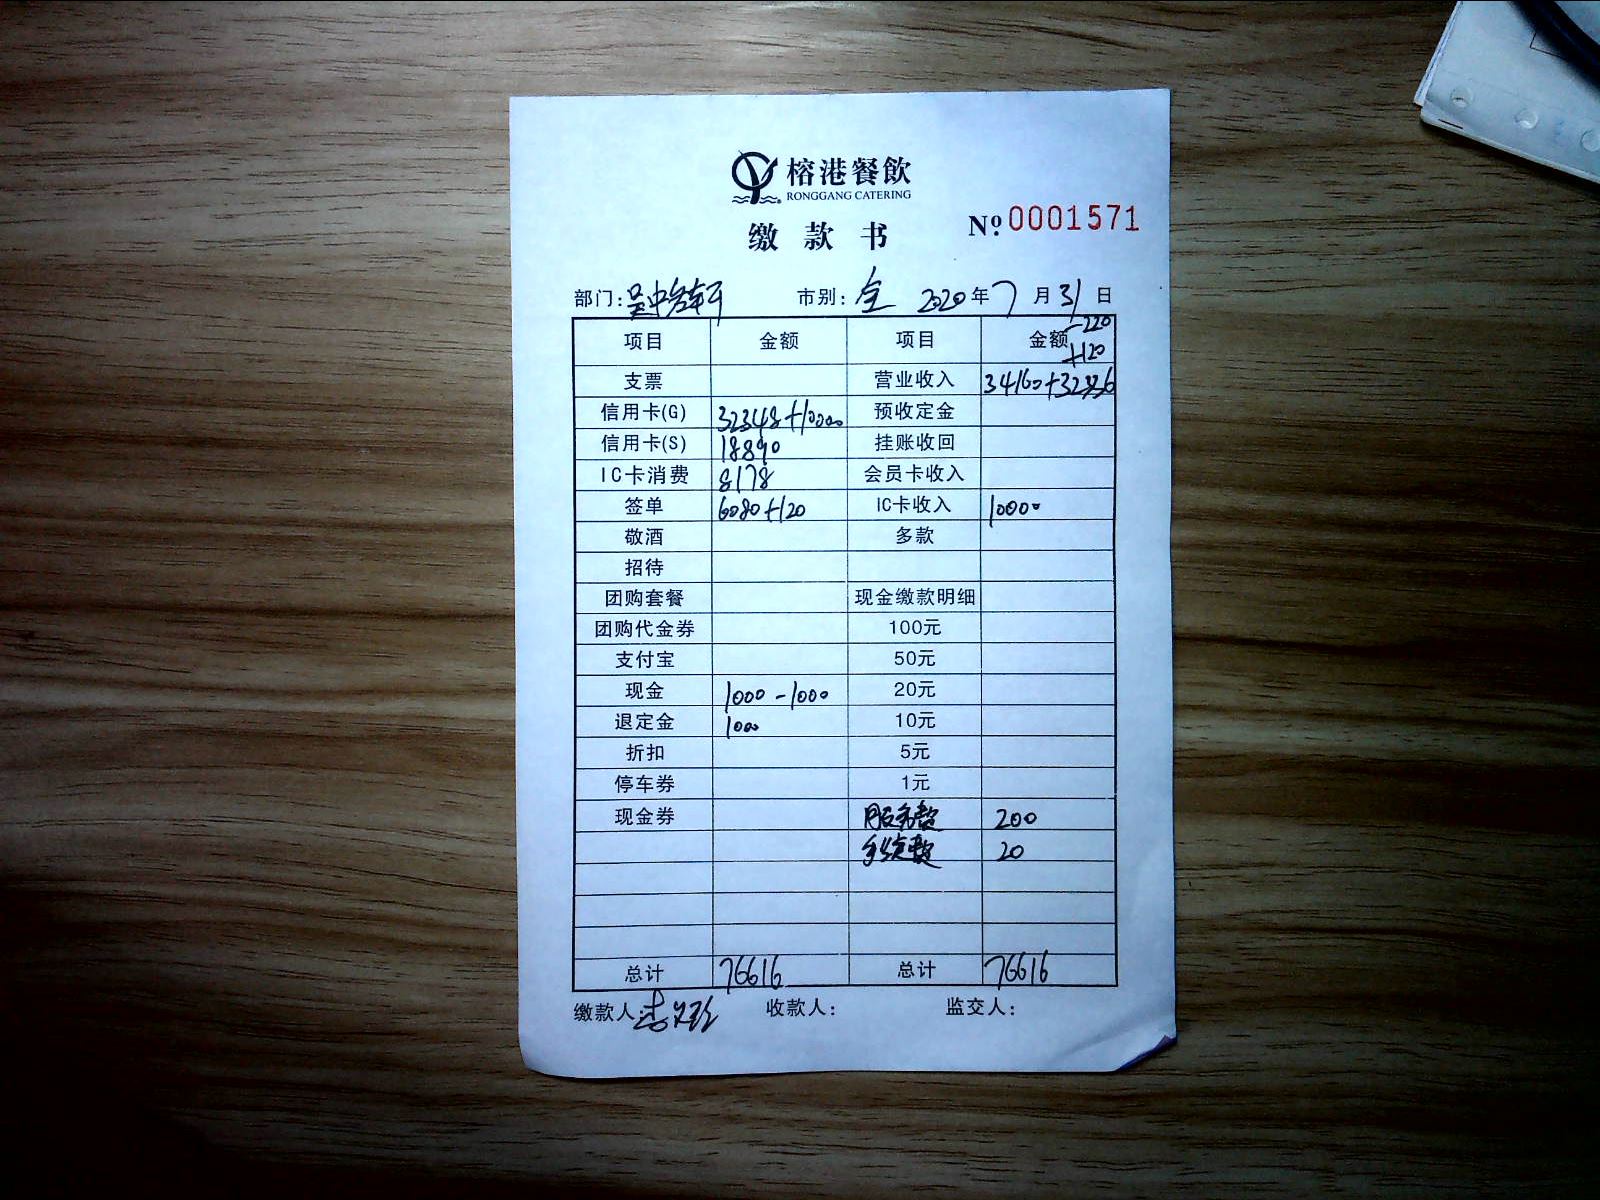 榕港餐飲
RONGGANG CATERING
缴款书
Nº 0001571
部门: 吴中 市别: 全 2020年7月31日
项目 金额 项目 金额 -220
+120
支票 营业收入 34160+32336
信用卡(G) 32348+10000 预收定金
信用卡(S) 18890 挂账收回
IC卡消费 8178 会员卡收入
签单 6080+120 IC卡收入 10000
敬酒 多款
招待
团购套餐 现金缴款明细
团购代金券 100元
支付宝 50元
现金 1000-1000 20元
退定金 1000 10元
折扣 5元
停车券 1元
现金券 服务款 200
手续款 20
总计 76616 总计 76616
缴款人: 收款人: 监交人: